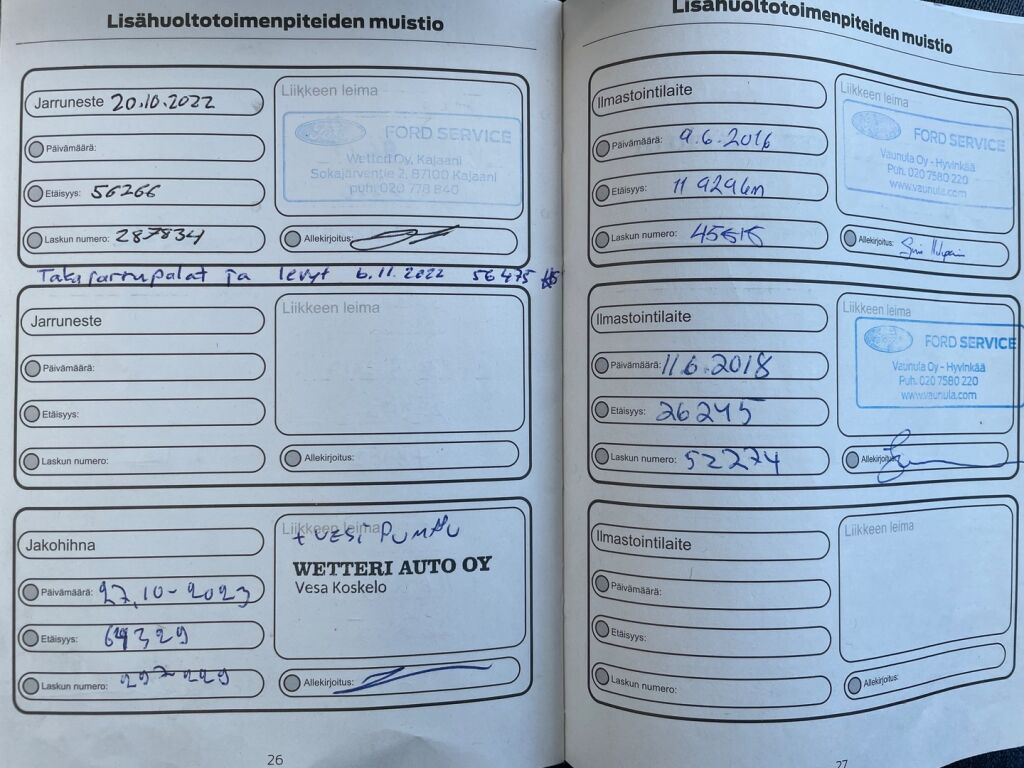 Lisähuoltotoimenpiteiden muistio
Jarruneste 20.10.2022
Päivämäärä:
Etäisyys: 56266
Laskun numero: 287834
Liikkeen leima
Ford
FORD SERVICE
Wetteri Oy, Kajaani
Sokajärventie 2, 87100 Kajaani
puh. 020 778 840
Allekirjoitus:
Takajarrupalat ja levyt 6.11.2022 56475
Jarruneste
Päivämäärä:
Etäisyys:
Laskun numero:
Liikkeen leima
Allekirjoitus:
Jakohihna
Päivämäärä: 27.10-2023
Etäisyys: 64329
Laskun numero: 297229
Liikkeen leima
+ VESI PUMPPU
WETTERI AUTO OY
Vesa Koskelo
Allekirjoitus:
26
Lisähuoltotoimenpiteiden muistio
Ilmastointilaite
Päivämäärä: 9.6.2016
Etäisyys: 11 929km
Laskun numero:
Liikkeen leima
Ford
FORD SERVICE
Vaunula Oy - Hyvinkää
Puh. 020 7580 220
www.vaunula.com
Allekirjoitus:
Ilmastointilaite
Päivämäärä: 11.6.2018
Etäisyys: 26245
Laskun numero: 52274
Liikkeen leima
Ford
FORD SERVICE
Vaunula Oy - Hyvinkää
Puh. 020 7580 220
www.vaunula.com
Allekirjoitus:
Ilmastointilaite
Päivämäärä:
Etäisyys:
Laskun numero:
Liikkeen leima
Allekirjoitus:
27